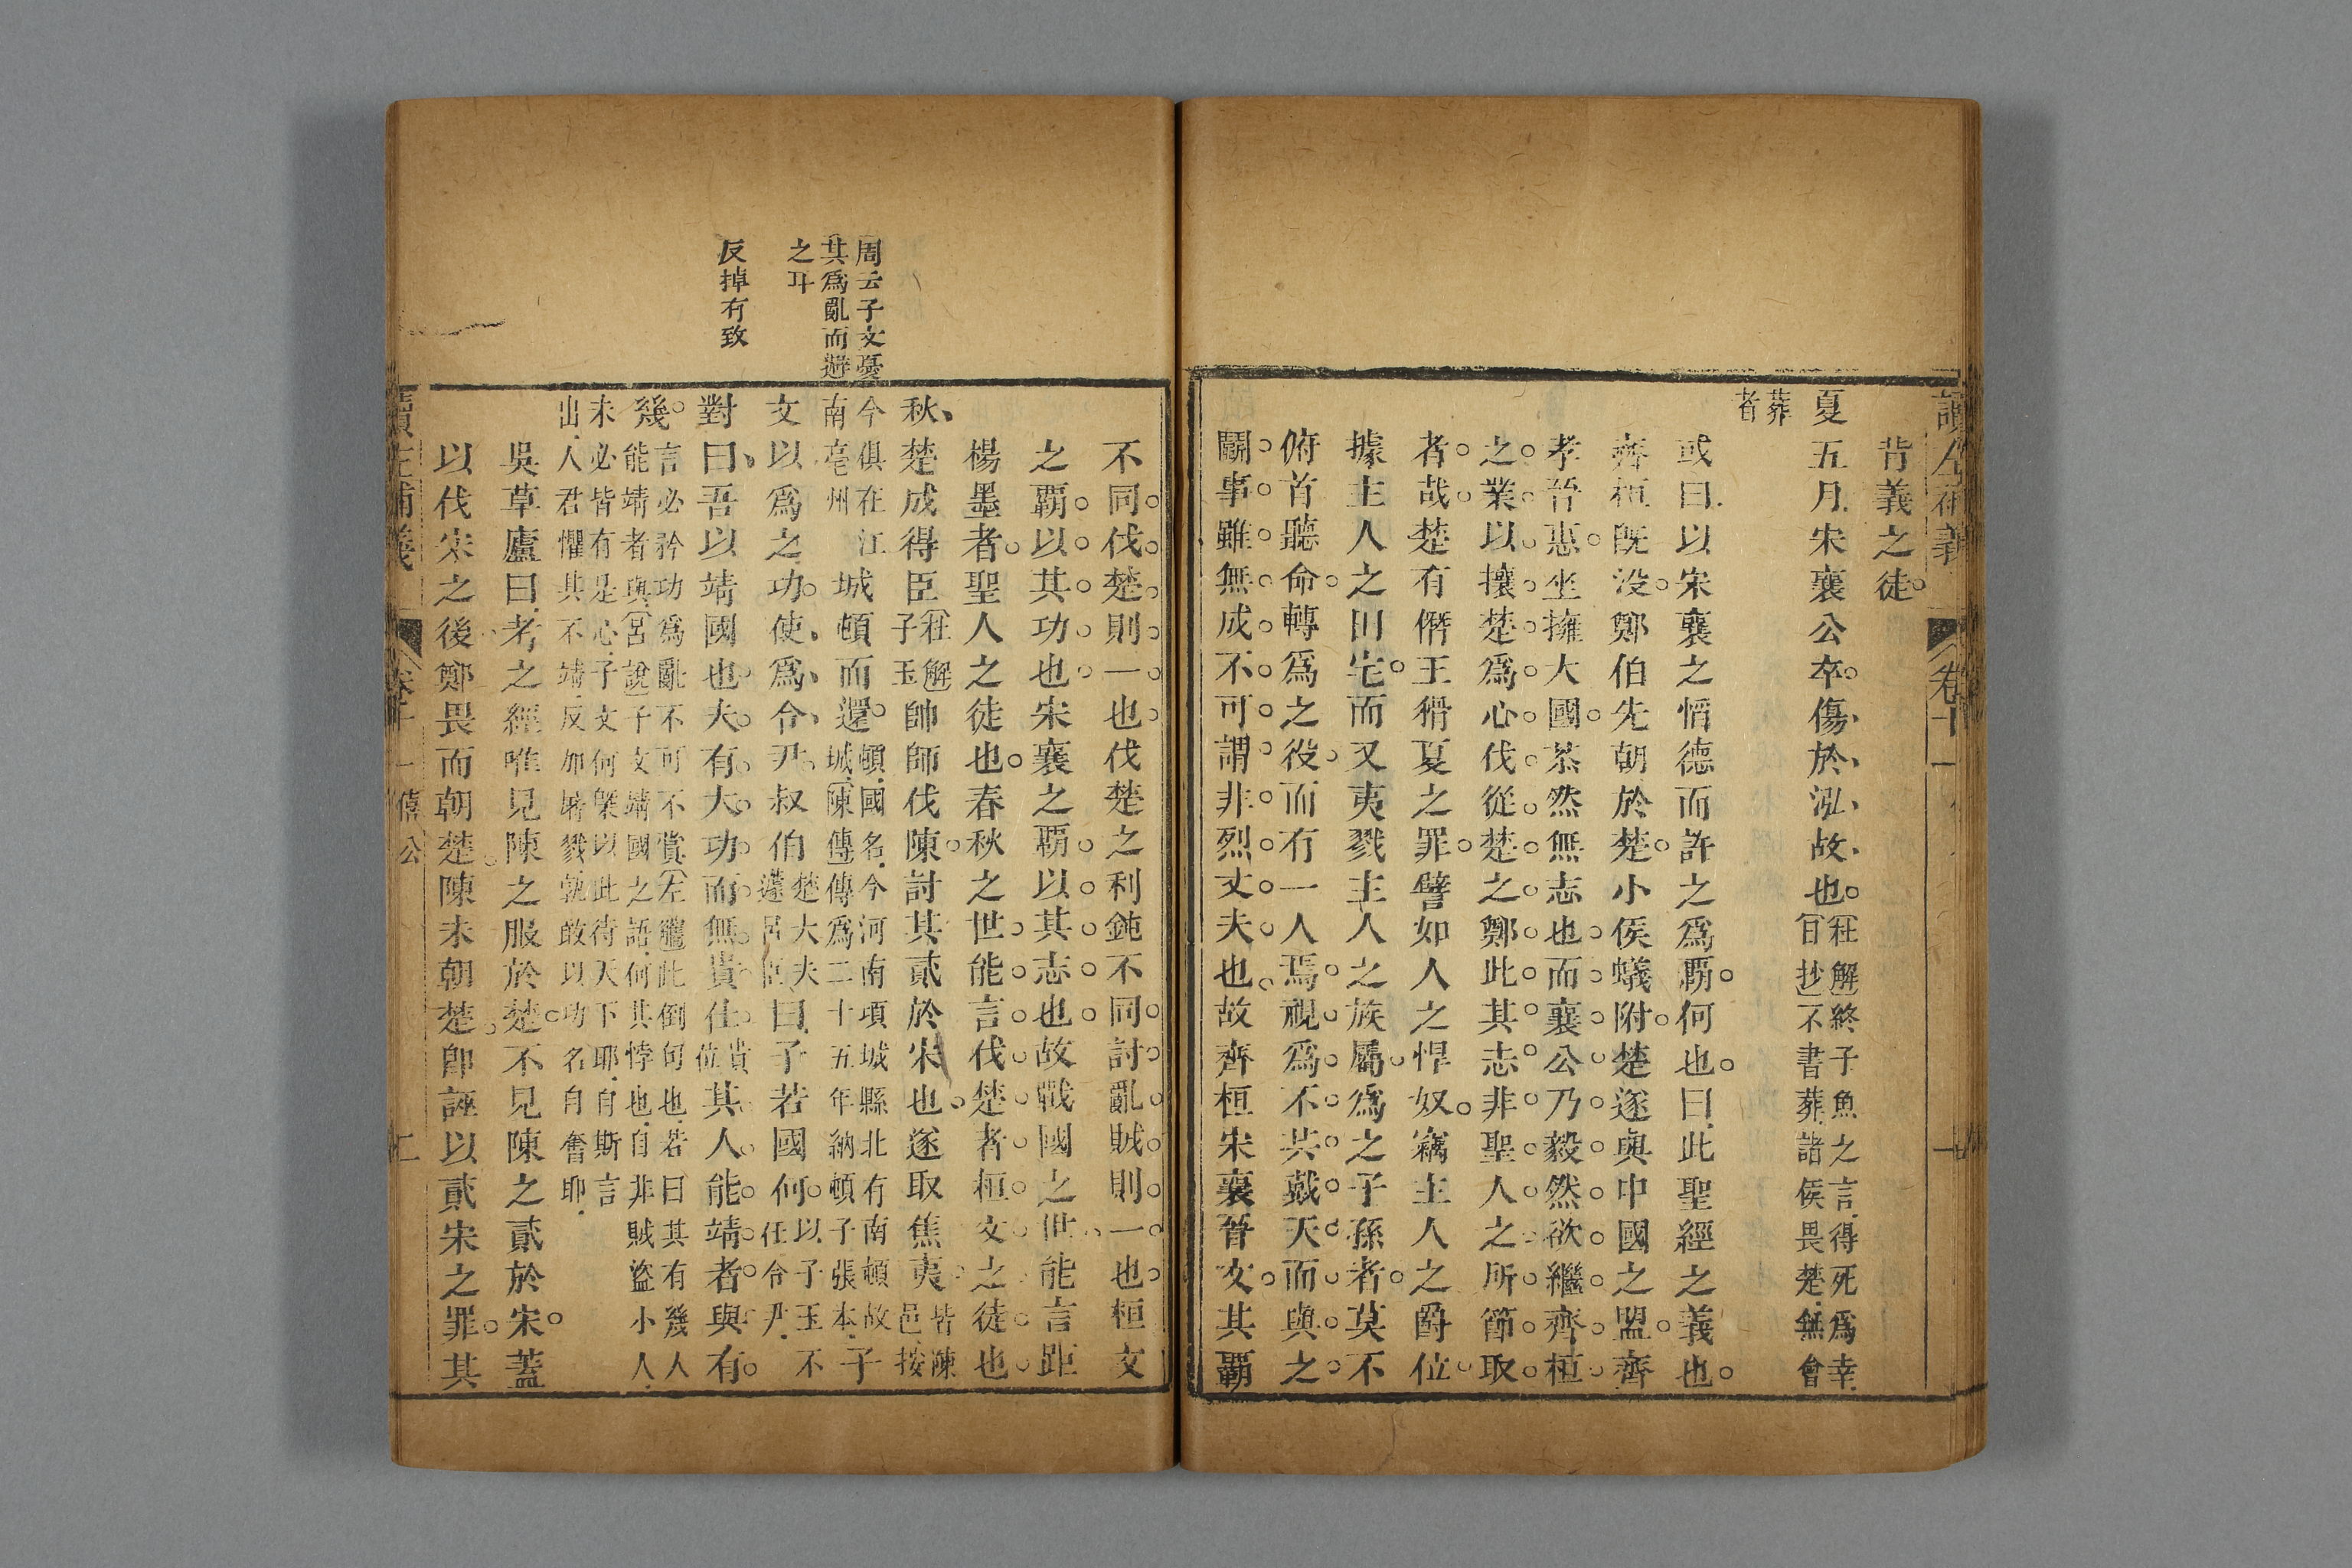 讀左補義
卷十一
一
背義之徒
夏五月宋襄公卒傷於泓故也杜解終子魚之言得死爲幸
日抄不書葬諸侯畏楚無會
葬
者
或曰以宋襄之惛德而許之爲覇何也曰此聖經之義也
齊桓既没鄭伯先朝於楚小侯蟻附楚遂與中國之盟齊
孝晉惠坐擁大國茶然無志也而襄公乃毅然欲繼齊桓
之業以攘楚爲心伐從楚之鄭此其志非聖人之所節取
者哉楚有僭王猾夏之罪譬如人之悍奴竊主人之爵位
據主人之田宅而又夷戮主人之族屬爲之子孫者莫不
俯首聽命轉爲之役而有一人焉視爲不共戴天而與之
鬭事雖無成不可謂非烈丈夫也故齊桓宋襄晉文其覇
不同伐楚則一也伐楚之利鈍不同討亂賊則一也桓文
之覇以其功也宋襄之覇以其志也故戰國之世能言距
楊墨者聖人之徒也春秋之世能言伐楚者桓文之徒也
秋楚成得臣杜解
子玉帥師伐陳討其貳於宋也遂取焦夷皆陳
邑按
今俱在江
南亳州城頓而還頓國名今河南項城縣北有南頓故
城陳傳傳爲二十五年納頓子張本子
文以爲之功使爲令尹叔伯楚大夫
薳呂臣曰子若國何以子玉不
任令尹
對曰吾以靖國也夫有大功而無貴仕貴
位其人能靖者與有
幾言必矜功爲亂不可不賞左繡此倒句也若曰其有幾人
能靖者與宮說子文靖國之語何其悖也自非賊盜小人
未必皆有是心子文何槩以此待天下耶自斯言
出人君懼其不靖反加屠戮孰敢以功名自奮耶
吳草廬曰考之經唯見陳之服於楚不見陳之貳於宋蓋
以伐宋之後鄭畏而朝楚陳未朝楚卽誣以貳宋之罪其
周云子文憂
其爲亂而遊
之耳
反掉有致
讀左補義
卷十一
僖公
二